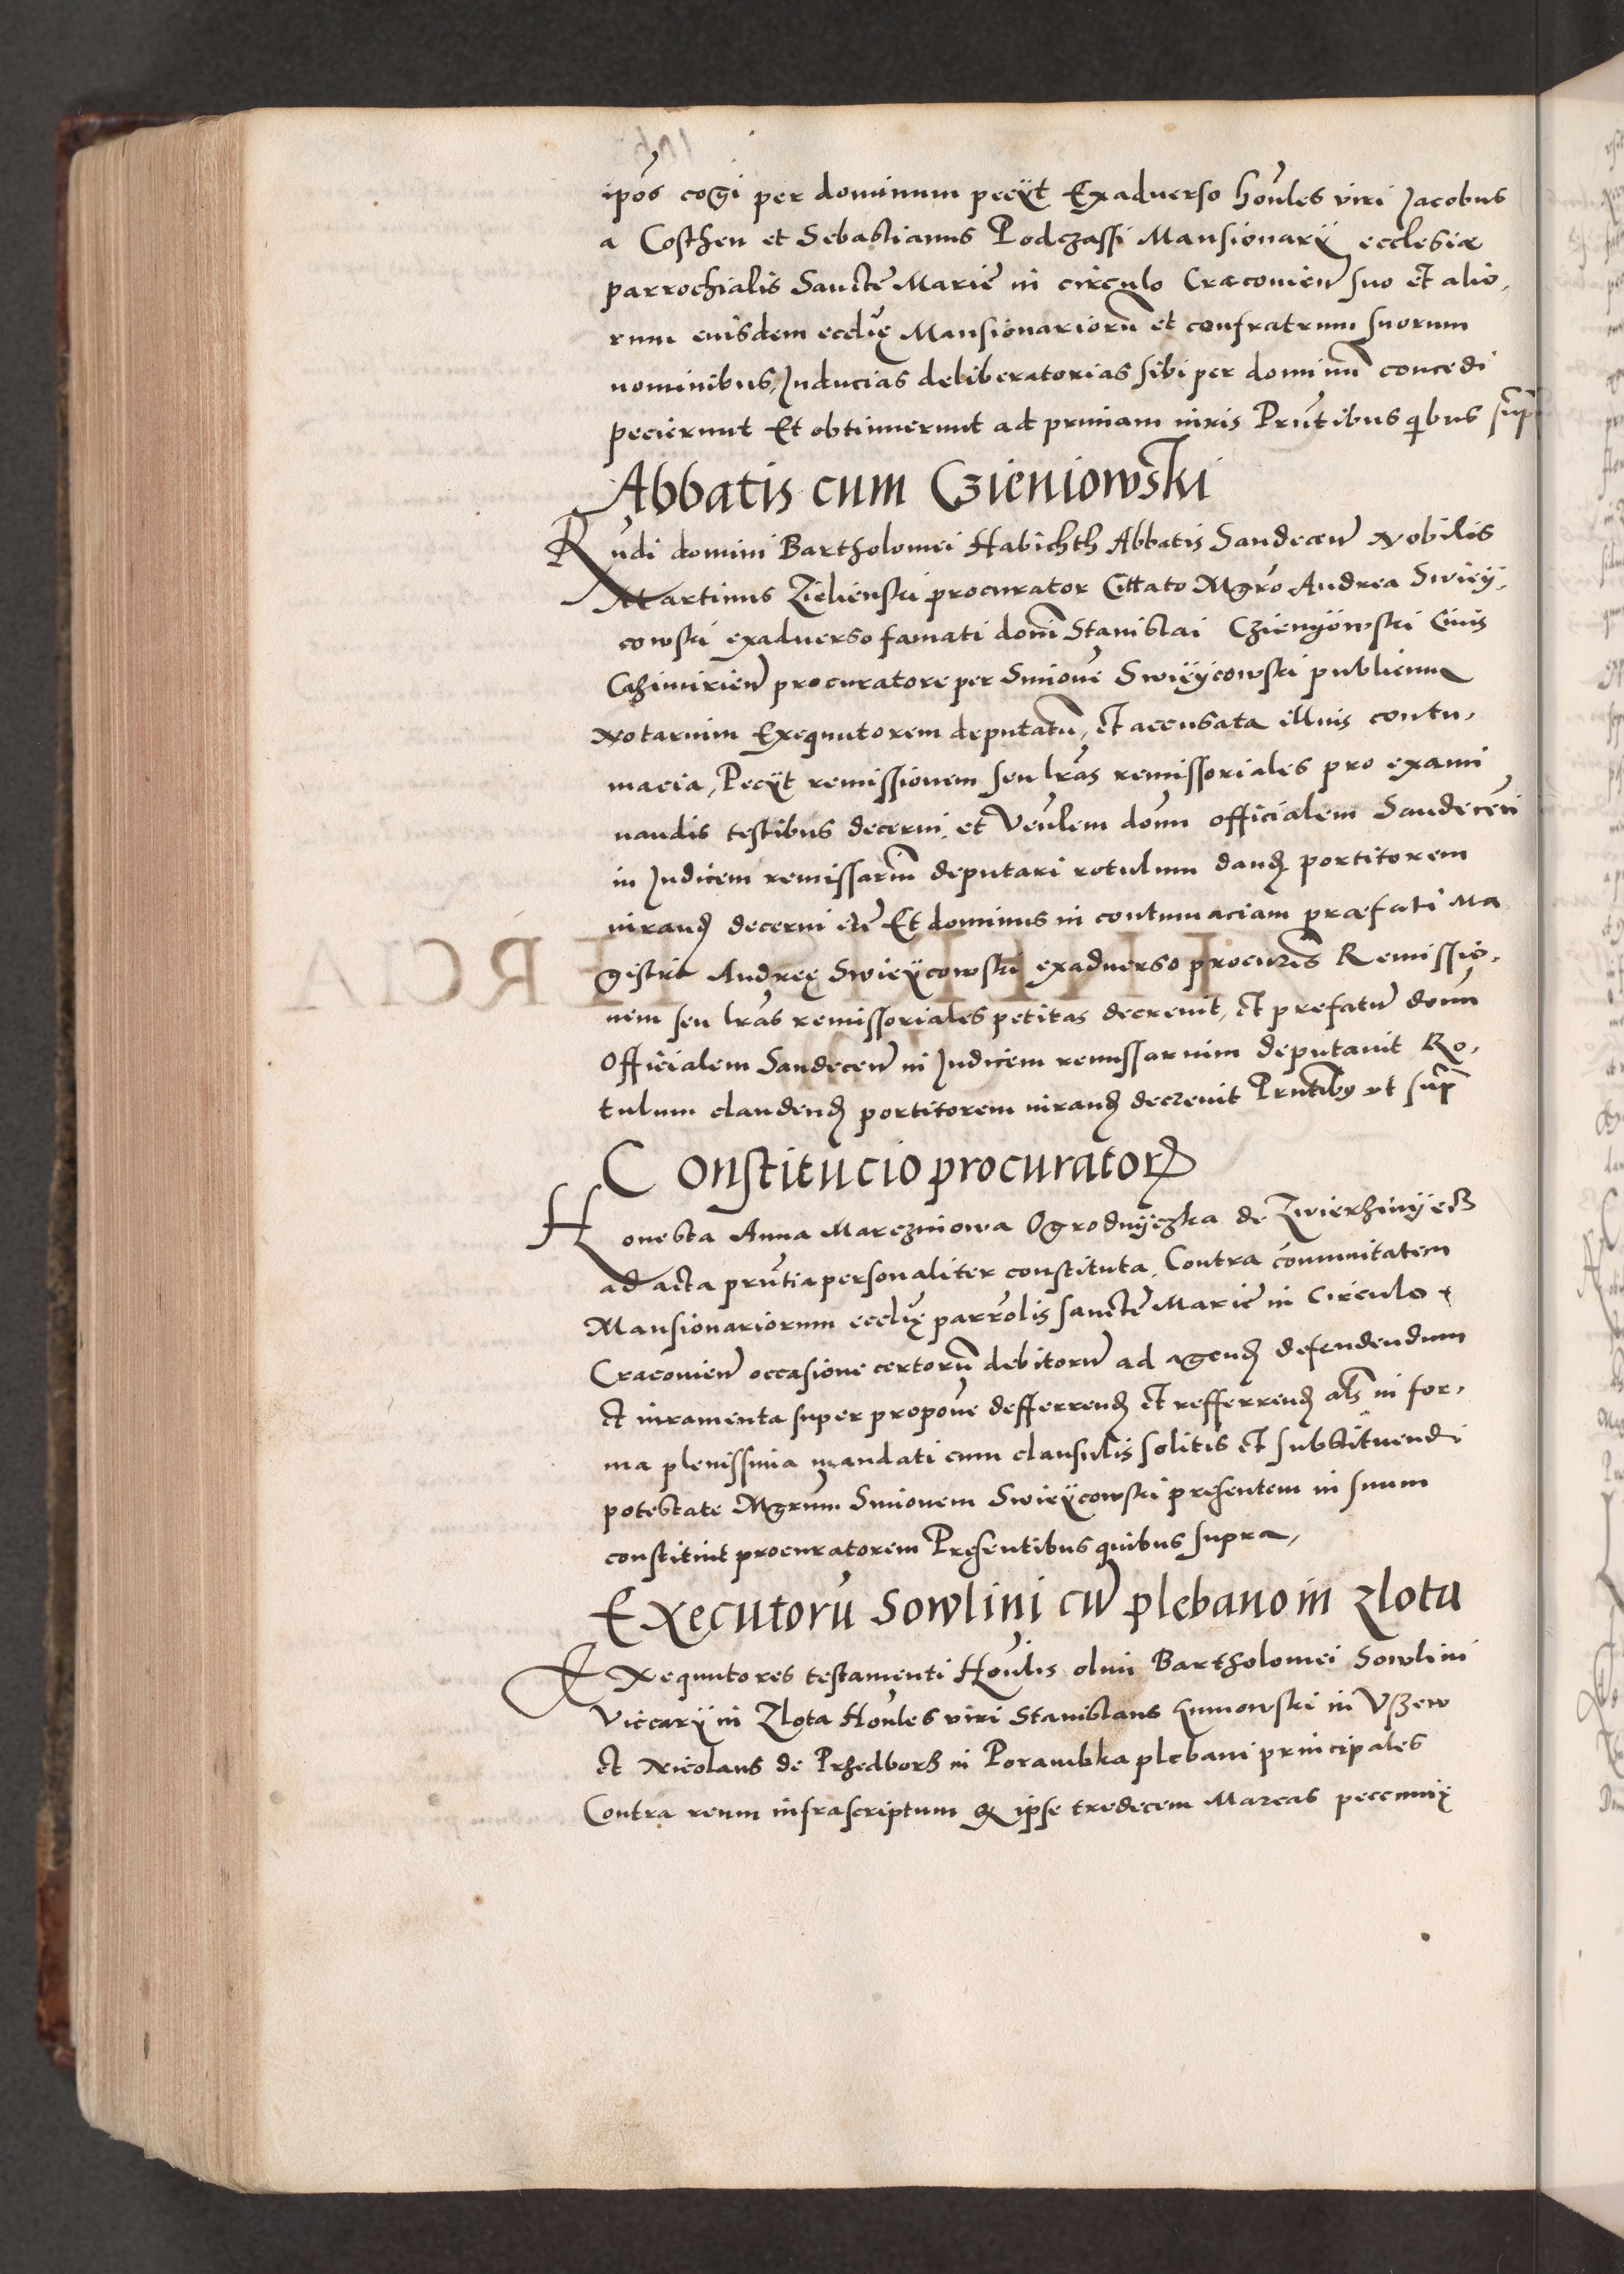 ipōs cogi per dominum peciit Exaduerso hoūles viri Jacobus
a Costhen et Sebastianus Podczassi Mansionarii ecclesiæ
parrochialis Sancte Marie in circulo Cracouien suo et alio,
rum euisdem ecclię Mansionariorū et confratrum suorum
nominibus, Inducias deliberatorias sibi per dominū concedi
pecierunt Et obtinuerunt ad primam iuris Prūtibus qibus sup
Abbatis cum Czieniowski
Rndi domini Bartholomei Habichth Abbatis Sandecen Nobilis
Martinus Zielienski procurator Cittato Mgro Andrea Swiey,
cowski exaduerso famati doni Stanislai Czienyowski Ciuis
Cazimirien procuratore per Simone Swieycowski publicum
Notarium Exequutorem deputatū, et accusata illius contu,
macia, Peciit remissionem seu lrās remissoriales pro exami
nandis testibus decerni, et Veūlem donn officialem Sandeceñ
in Judicem remissariū deputari rotulum dand portitorem
iurand decerni etc Et dominus in contumaciam præfati Ma
gistri Andreę Swieycowski exaduerso procurīs Remissio,
nem seu lrās remissoriales petitas decreuit, et prefatum donn
Officialem Sandecen in Judicem remissarium deputauit Ro,
tulum claudend portitorem iurand decreuit Prntibus ut sup
Constitucio procurator
Honesta Anna Marczniowa Ogrodnyczka de Zwierzinyecz
ad acta prūtia personaliter constituta, Contra cōmunitatem
Mansionariorum ecclię parrolis sancte Marie in Circulo
Cracouien occasione certorū debitorum ad agend defendendum
et iuramenta super propone defferrend et refferrend als in for,
ma plenissima mandati cum clausulis solitis et substituendi
potestate Mgrum Simonem Swieycowski presentem in suum
constituit procuratorem Presentibus quibus supra,
Executorū Sowlini cum plebano in Zlota
Exequutores testamenti Hoūlis olim Bartholomei Sowlini
Viccarii in Zlota Hoūles viri Stanislaus in Vszew
et Nicolaus de Przedborz in Porambka plebani principales
Contra reum infrascriptum q ipse tredecem Marcas peccunię